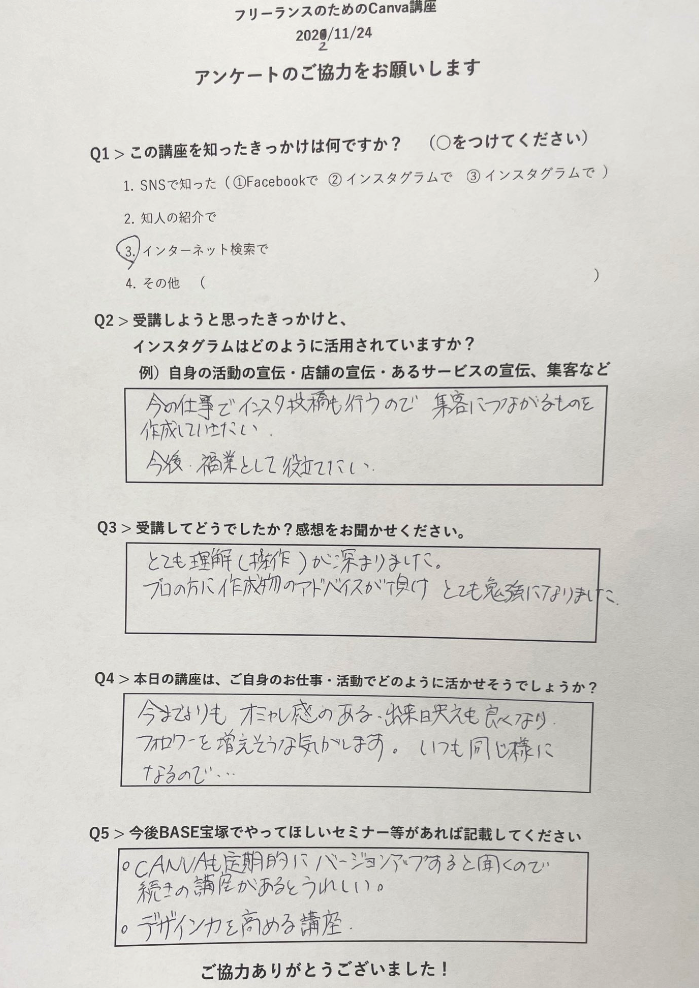 フリーランスのためのCanva講座
2022/11/24
アンケートのご協力をお願いします
Q1＞この講座を知ったきっかけは何ですか？　（〇をつけてください）
1. SNSで知った（①Facebookで　②インスタグラムで　③インスタグラムで ）
2. 知人の紹介で
3. インターネット検索で
4. その他　（　　　　　　　　　　）
Q2＞受講しようと思ったきっかけと、
インスタグラムはどのように活用されていますか？
例）自身の活動の宣伝・店舗の宣伝・あるサービスの宣伝、集客など
今の仕事でインスタ投稿も行うので 集客につながるものを
作成していきたい.
今後.福業として役立てたい.
Q3＞受講してどうでしたか？感想をお聞かせください。
とても理解(操作)が深まりました。
プロの方に作成物のアドバイスが頂け とても勉強になりました.
Q4＞本日の講座は、ご自身のお仕事・活動でどのように活かせそうでしょうか？
今までよりも オシャレ感のある.出来映えも良くなり.
フォロワーを増えそうな気がします。 いつも同じ様に
なるので…
Q5＞今後BASE宝塚でやってほしいセミナー等があれば記載してください
○CANVAも定期的に バージョンアップすると聞くので
続きの講座があるとうれしい。
○デザイン力を高める講座.
ご協力ありがとうございました！